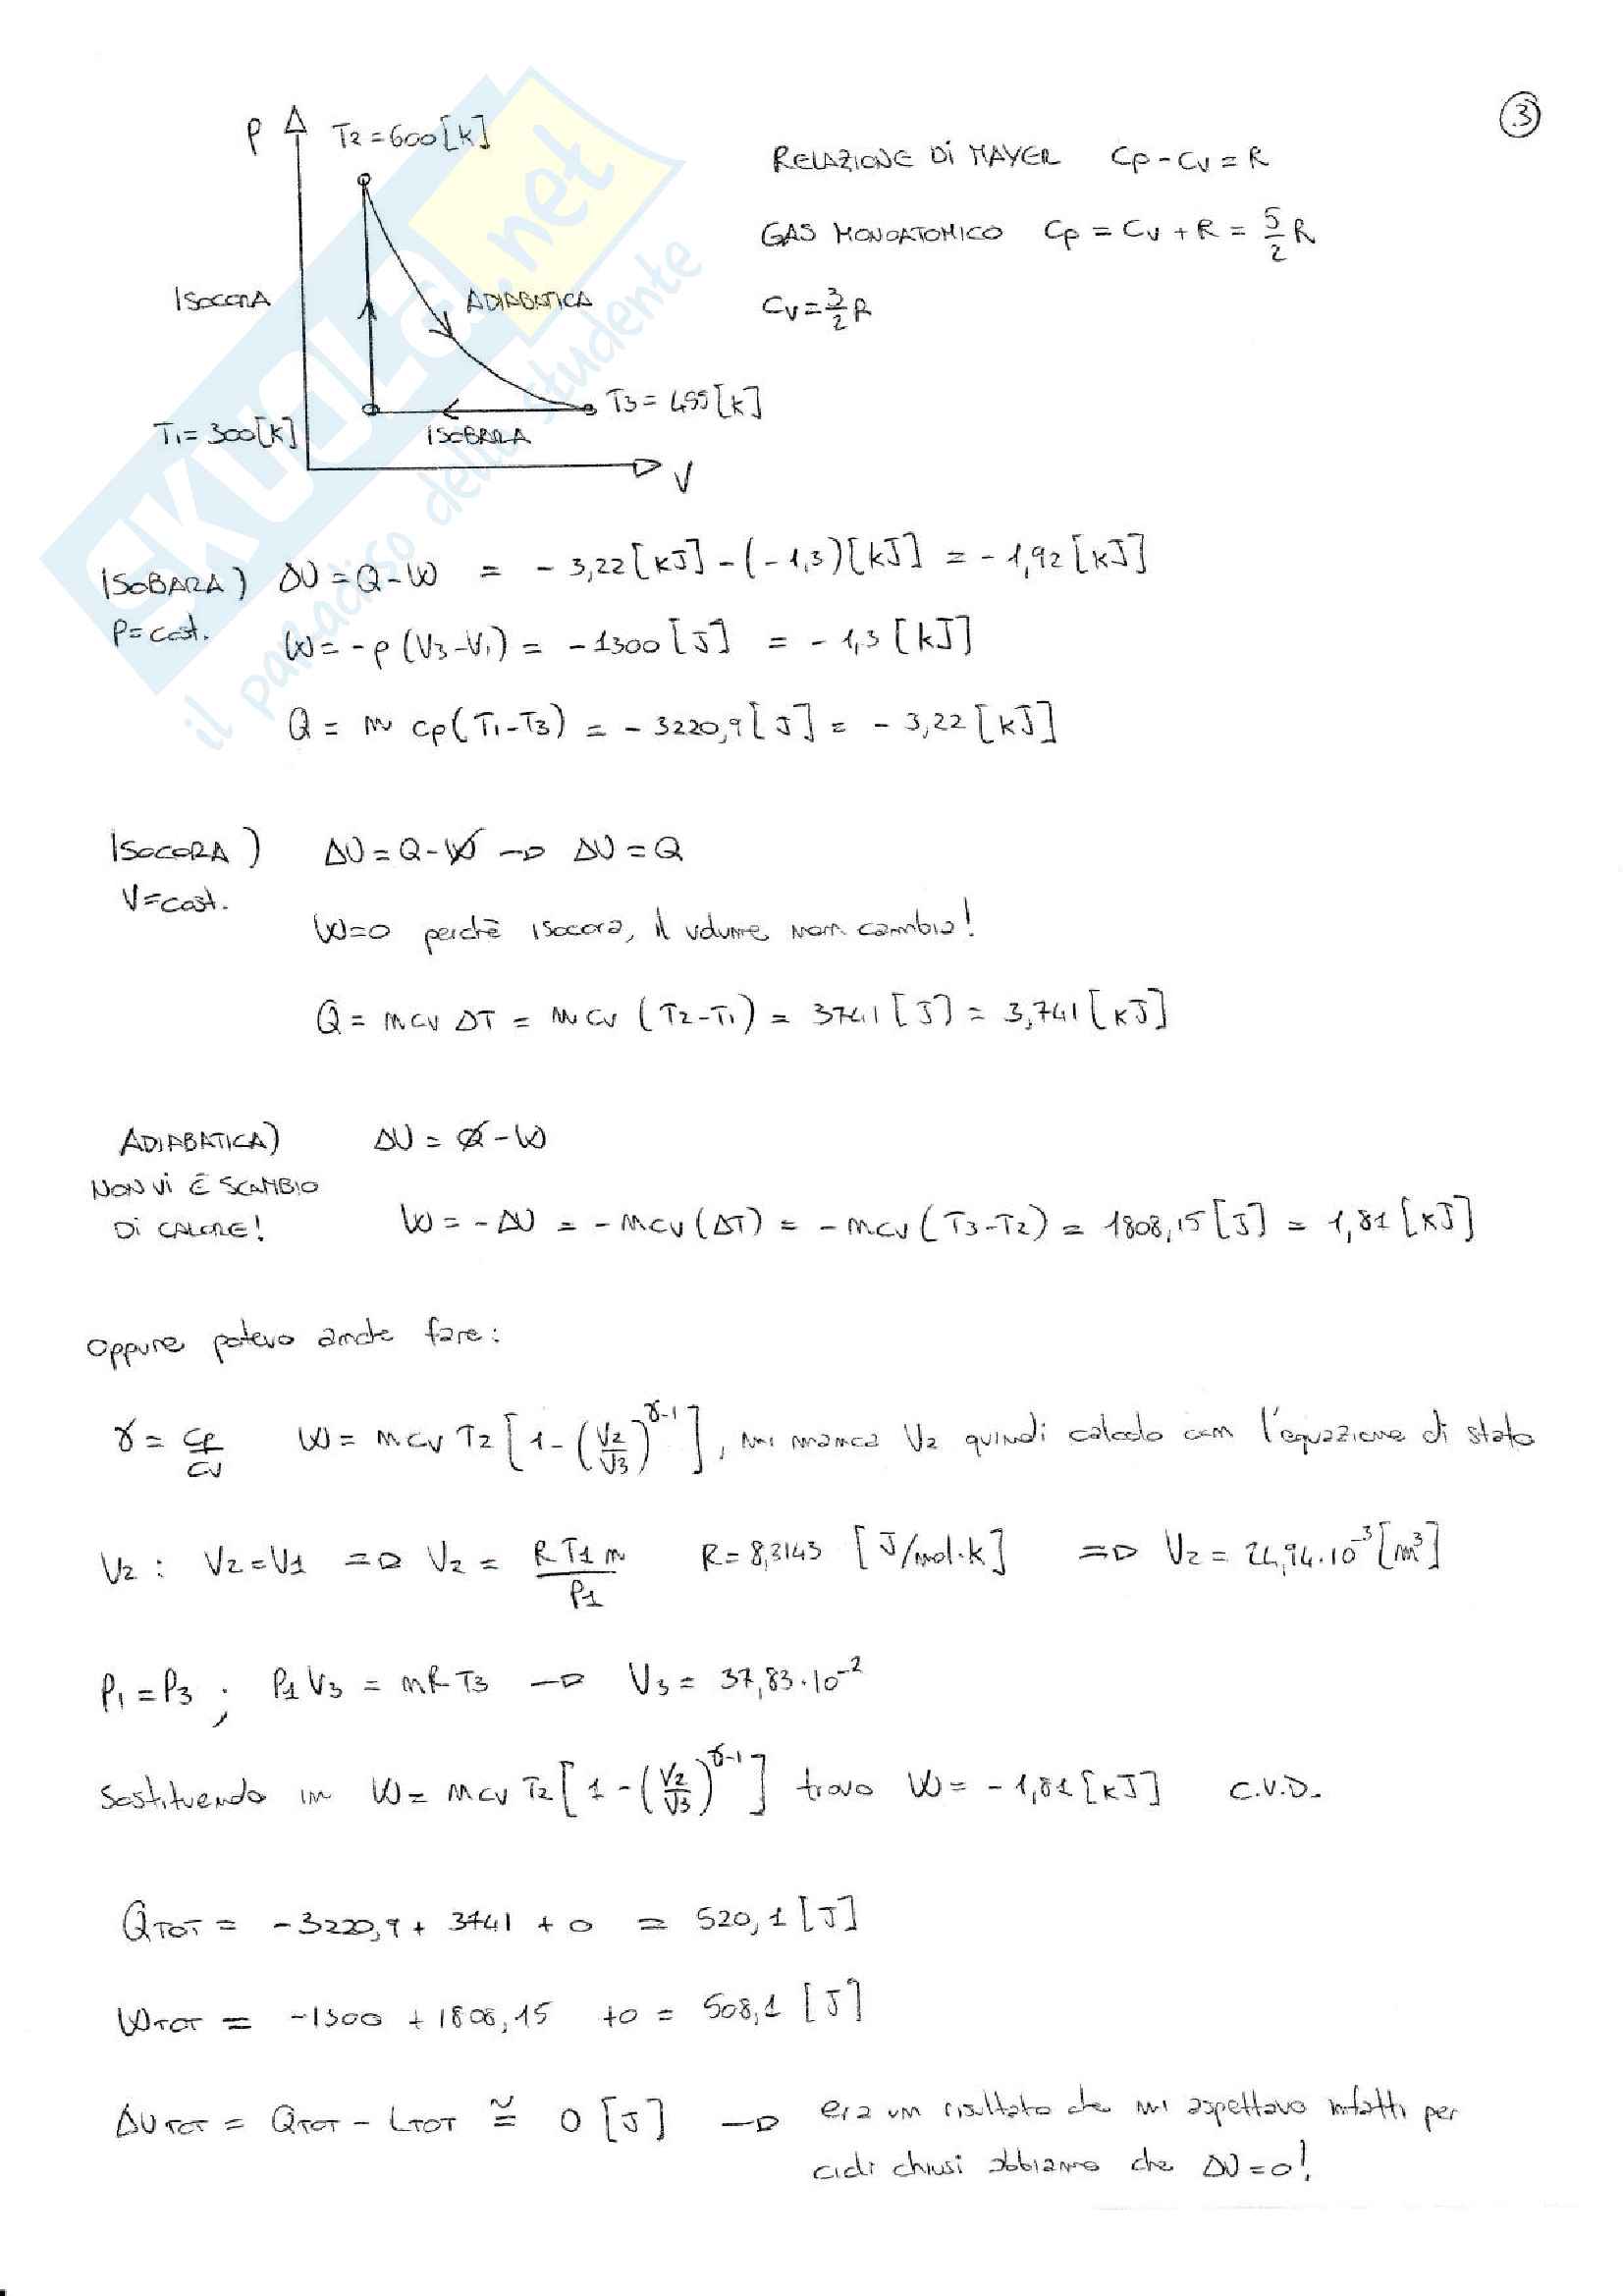 3
P
T2=600[K]
RELAZIONE DI MAYER Cp-Cv=R
GAS MONOATOMICO Cp = Cv + R = 5/2 R
ISOCORA
ADIABATICA
Cv=3/2 R
T3=455[K]
T1=300[K]
ISOBARA
V
SKUOLA.net
il paradiso dello studente
ISOBARA) ΔU=Q-W = -3,22[kJ]-(-1,3)[kJ] = -1,92[kJ]
P=cost.
W=-p(V3-V1) = -1300[J] = -1,3[kJ]
Q = m cp(T1-T3) = -3220,9[J] = -3,22[kJ]
ISOCORA) ΔU=Q-W → ΔU=Q
V=cost.
W=0 perchè isocora, il volume non cambia!
Q = mcv ΔT = mcv (T2-T1) = 3741[J] = 3,741[kJ]
ADIABATICA) ΔU = Q-W
NON VI È SCAMBIO
DI CALORE!
W=-ΔU = -mcv(ΔT) = -mcv(T3-T2) = 1808,15[J] = 1,81[kJ]
oppure potevo anche fare:
γ = cp/cv W= mcv T2[1-(V2/V3)^γ-1], mi manca V2 quindi calcolo con l'equazione di stato
V2: V2=V1 => V2 = RT1 n/P1 R=8,3143 [J/mol·K] => V2=24,94·10^-3[m^3]
P1=P3; P1V3 = nRT3 → V3 = 37,83·10^-2
Sostituendo in W= mcv T2[1-(V2/V3)^γ-1] trovo W=-1,81[kJ] C.V.D.
QTOT = -3220,9+ 3741 + 0 = 520,1[J]
WTOT = -1300 +1808,15 +0 = 508,1[J]
ΔUTOT = QTOT - LTOT ≅ 0[J] → era un risultato che mi aspettavo infatti per
cicli chiusi abbiamo che ΔU=0!